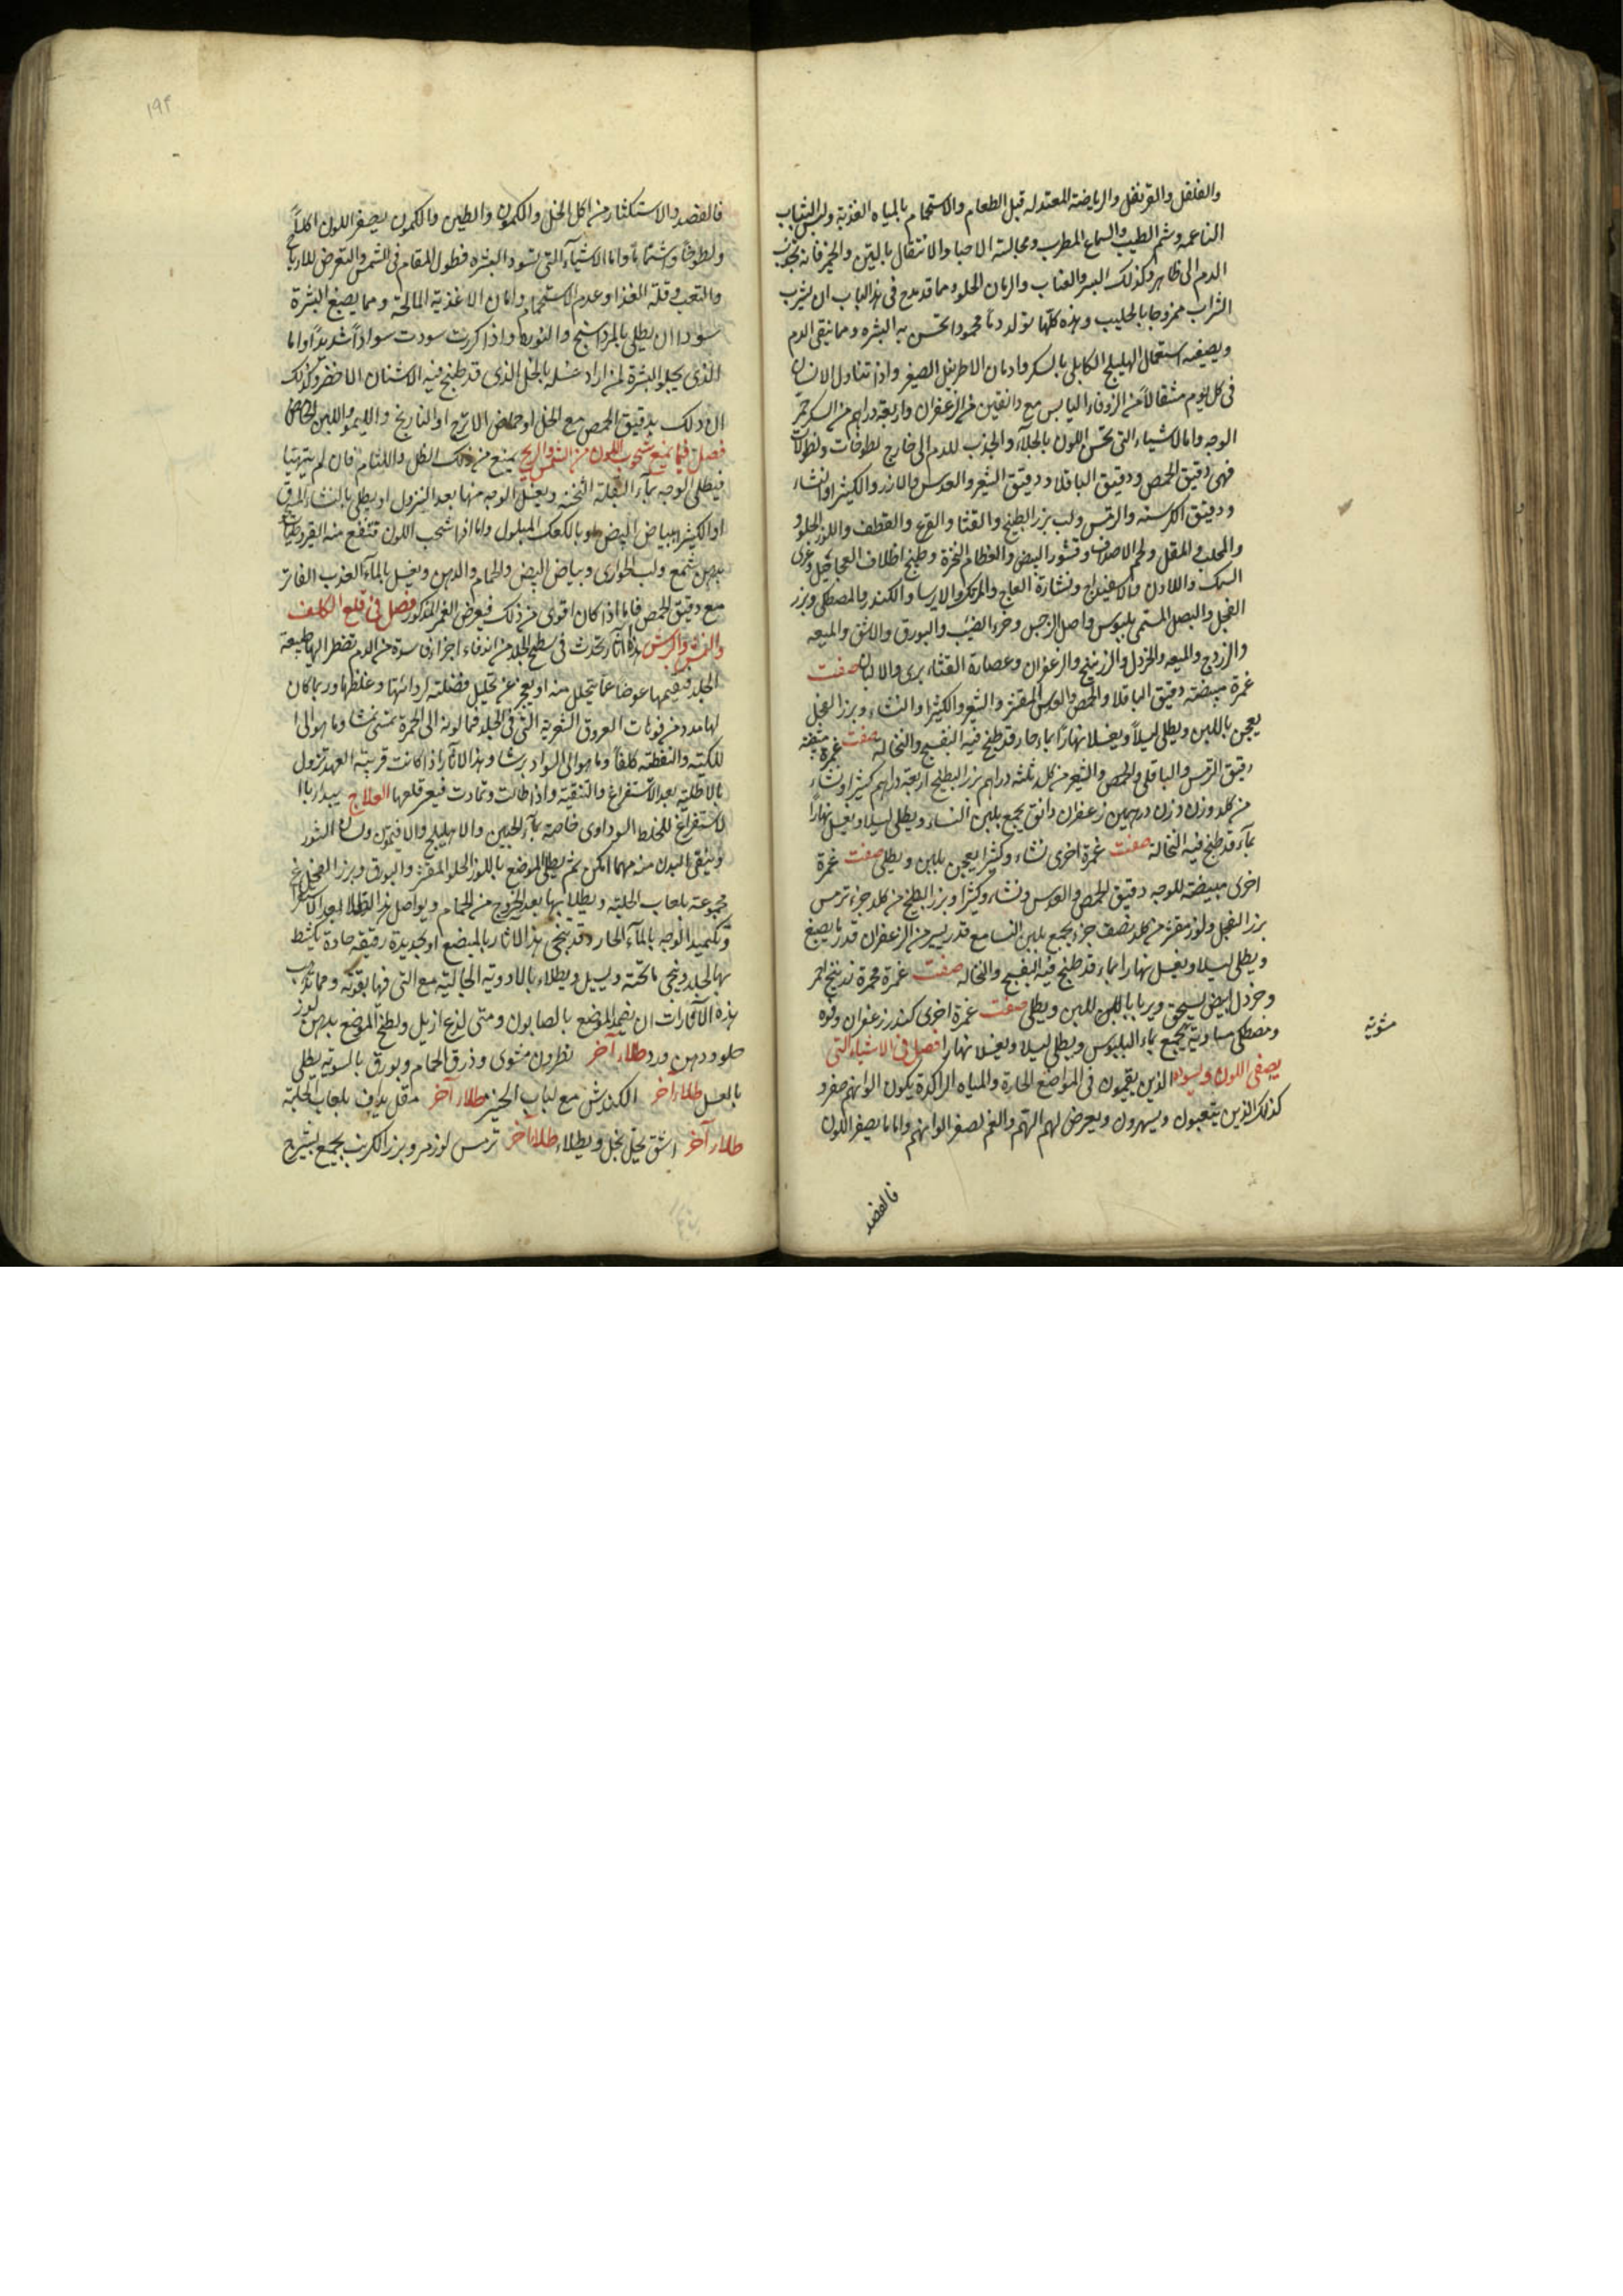 والفلفل والقرنفل والرياضة المعتدله قبل الطعام والاستحمام بالمياه العذبة ولبس الثياب
الناعمه وشم الطيب والسماع المطرب ومجالسة الاحبا والانتقال بالتين والجبن فانه يجذب
الدم الى ظاهر وكذلك البسر والعناب والرمان الحلو ومما قد يدح فى هذا الباب ان يشرب
الشراب ممزوجا بالحليب وهذه كلها تولد دما محمودا تحسن به البشره ومما ينقى الدم
ويصفيه استعمال الهليلج الكابلى بالسكر وادمان الاطريفل الصغير واذا تناول الانسان
فى كل يوم مثقالا من الزوفا اليابس مع دانقين من الزعفران واربعة دراهم من السكر حمر
الوجه واما الاشياء التى تحسن اللون بالجلاء والجذب للدم الى خارج لطوخات ونطولات
فهى دقيق الحمص ودقيق الباقلا ودقيق الشعير والعدس والارز والكثيرا والنشاء
ودقيق الكرسنه والترمس ولب بزر البطيخ والقثا والقرع والقطف واللوز الحلو و
والمحلب والمقل ولحم الاصداف وقشور البيض والعظام النخرة وطبيخ اظلاف العجاجيل وغرى
السمك واللادن والاسفيداج ونشارة العاج والمرتك والايرسا والكندر والمصطكى وبزر
الفجل والبصل المسمى بلبوس واصل النرجس وخرء الضب والبورق والاشق والميعه
والزردج والميعه والخردل والزرنيخ والزعفران وعصارة القثاء برى والالبان صفت
غمرة مبيضة دقيق الباقلا والحمص والعدس المقشر والشعير والكثيرا والنشاء وبزر الفجل
يعجن باللبن ويطلى ليلاً ويغسل نهاراً بماء حار قد طبخ فيه البنفسج والنخاله صفت غمرة منقيته
دقيق الترمس والباقلى والحمص والشعير من كل ثلثه دراهم بزر البطيخ اربعة دراهم كثيرا ونشاء
من كل وزن درهمين زعفران دانق يجمع بلبن النساء ويطلى ليلا ويغسل نهاراً
بماء قد طبخ فيه النخالة صفت غمرة اخرى نشاء وكثيرا يعجن بلبن ويطلى صفت غمرة
اخرى مبيضة للوجه دقيق الحمص والعدس ونشاء وكثيرا وبزر البطيخ من كل جزء ترمس
بزر الفجل ولوز مقشر من كل نصف جزء يجمع بلبن النسا مع قدر يسير من الزعفران قدر ما يصبغ
ويطلى ليلا ويغسل نهارا بماء قد طبخ فيه البنفسج والنخاله صفت غمرة محمرة زرنيخ احمر
وخردل ابيض يسحق ويربا باللبن ويطلى صفت غمرة اخرى كندر زعفران وفوه
ومصطكى مساوية يجمع بماء البلبوس ويطلى ليلا ويغسل نهارا فصل فى الاشياء التى
يصفى اللون ويسوده الذين يقيمون فى المواضع الحارة والمياه الراكدة يكون الوانهم صفر و
كذلك الذين يتعبون ويسهرون ويعرض لهم الهم والغم لصفر الوانهم واما ما يصفر اللون
فالفصد
مثوية
١٩٢
فالفصد والاستكثار من اكل الخل والكمون والطين والكمون يصفر اللون اكلاً
ولطوخاً وشماً واما الاشيآء التى تسود البشره فطول المقام فى الشمس والتعرض للارياح
والتعب وقلة الغذا وعدم الاستحمام وادمان الاغذية المالحة ومما يصبغ البشرة
سودا ان يطلى بالمرداسنج والنوره واذا كررت سودت سواداً شديداً واما
الذى يجلو البشرة لمن اراد غسله بالخل الذى قد طبخ فيه الاشنان الاخضر وكذلك
ان دلك بدقيق الحمص مع الخل او حماض الاترج او النارنج والليمو واللبن الحامض
فصل فيما يمنع شحوب اللون من الشمس والريح يمنع من ذلك الظل واللثام فان لم يتهيا
فيطلى الوجه بمآء البقلة الثخنه ويغسل الوجه منها بعد النزول او يطلى بالنشاء المدق
او الكثيرا ببياض البيض او بالكعك المبلول واما اذا شحب اللون فتنفع منه القيروطيات
بدهن شمع ولب الحوارى وبياض البيض والحمام والدهن ويغسل بالمآء العذب الفاتر
مع دقيق الحمص فاما اذا كان اقوى من ذلك فيعرض الغمر المذكور فصل فى قلع الكلف
والنمش والبرش هذه اثار تحدث فى سطح الجلد من اندفاء اجزاء فاسدة من الدم تضطر اليها طبيعة
الجلد فيقيمها عوضا عما يتحلل منه او يعجز عن تحليل فضلته لردائتها وغلظها وربما كان
لها مدد من فوهات العروق الشعرية التى فى الجلد فما لونه الى الحمرة تسمى نمشا وما هو الى ا
للكيته والنقطته كلفاً وما هو الى السواد برشا وهذا الآثار اذا كانت قريبة العهد تزول
بالاطلية بعد الاستفراغ والتنقية واذا طالت وتمادت فيعسر قلعها العلاج يبدا باا
لاستفراغ للخلط السوداوى خاصة بمآء الجبن والاهليلج والافتيمون ولسان الثور
وينقى البدن منه مهما امكن ثم يطلى الموضع باللوز الحلو المقشر والبورق وبزر الفجل
مجموعة بلعاب الحلبة ويطلا بها بعد الخروج من الحمام ويواصل هذا الطلا بعد الانكباب
وتكميد الوجه بالمآء الحار وقد ينحى هذا الاثار بالمبضع او بحديدة رقيقه حادة يكشط
بها الجلد وينحى ما تحته ويسيل ويطلاء بالادوية الجالية مع التى فيها بقوته ومما يذهب
هذه الآثارات ان يضمد الموضع بالصابون ومتى لذع ازيل ولطخ الموضع بدهن لوز
حلو ودهن ورد طلاء آخر نطرون مشوى وذرق الحمام وبورق بالسويه يطلى
بالعسل طلاء آخر الكندش مع لباب الخبز طلاء آخر مقل يداف بلعاب الحلبة
طلاء آخر اشق يحل بخل ويطلاء طلاء آخر ترمس لوز مر وبزر الكرنب يجمع بشيرج